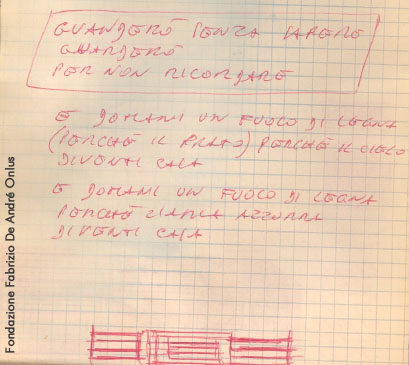 GUARDERÒ SENZA SAPERE
GUARDERÒ
PER NON RICORDARE
E DOMANI UN FUOCO DI LEGNA
(PERCHÈ IL PRATO) PERCHÈ IL CIELO
DIVENTI CASA
E DOMANI UN FUOCO DI LEGNA
PERCHÈ L'ARIA AZZURRA
DIVENTI CASA
Fondazione Fabrizio De André Onlus